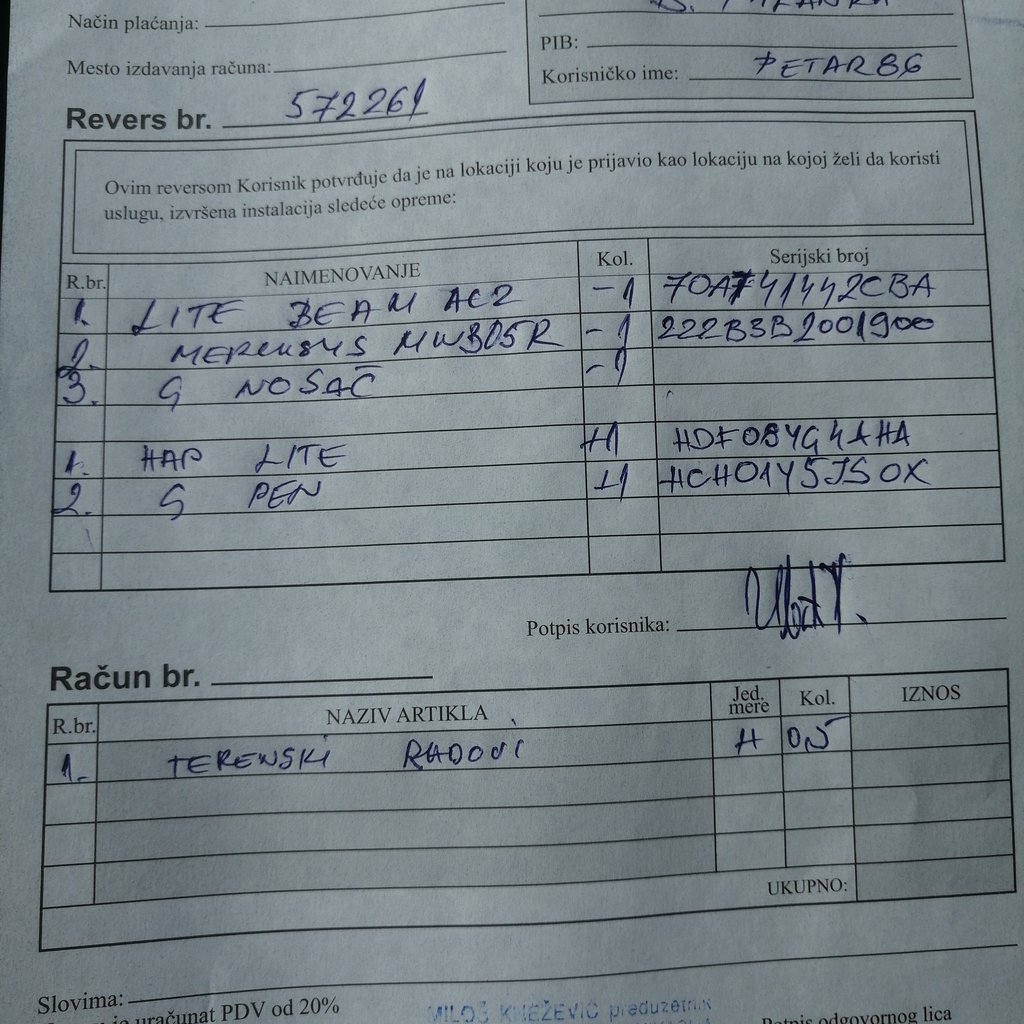 Način plaćanja:
PIB:
Mesto izdavanja računa:
Korisničko ime: PETAR86
Revers br. 572261
Ovim reversom Korisnik potvrđuje da je na lokaciji koju je prijavio kao lokaciju na kojoj želi da koristi
uslugu, izvršena instalacija sledeće opreme:
R.br. NAIMENOVANJE Kol. Serijski broj
1. LITE BEAM AC2 -1 70A741442CBA
2. MERCUSYS MW305R -1 222B3B2001900
3. G NOSAČ -1
1. HAP LITE +1 HDF084G4AHA
2. G PEN +1 HCH01Y5JSOX
Potpis korisnika:
Račun br.
R.br. NAZIV ARTIKLA Jed. mere Kol. IZNOS
1. TERENSKI RADOVI H 0,5
UKUPNO:
Slovima:
je uračunat PDV od 20%
MILOŠ KNEŽEVIĆ preduzetnik
Potpis odgovornog lica